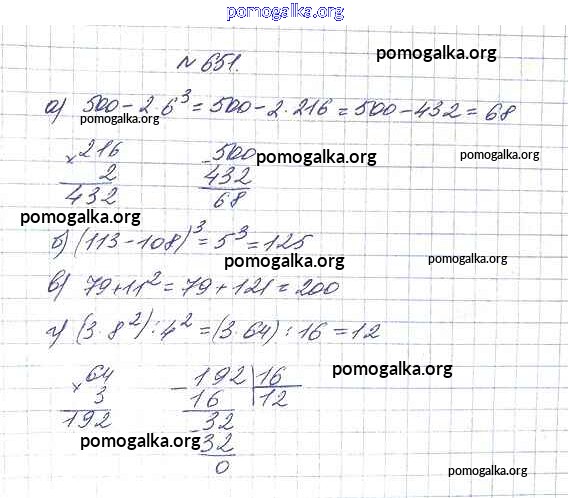 pomogalka.org
№ 651.
pomogalka.org
а) 500 - 2 · 6³ = 500 - 2 · 216 = 500 - 432 = 68
pomogalka.org
× 216
2
432
- 500
432
68
pomogalka.org
pomogalka.org
pomogalka.org
б) (113 - 108)³ = 5³ = 125
pomogalka.org
pomogalka.org
в) 79 + 11² = 79 + 121 = 200
г) (3 · 8²) : 4² = (3 · 64) : 16 = 12
pomogalka.org
× 64
3
192
- 192 | 16
16 | 12
- 32
32
0
pomogalka.org
pomogalka.org